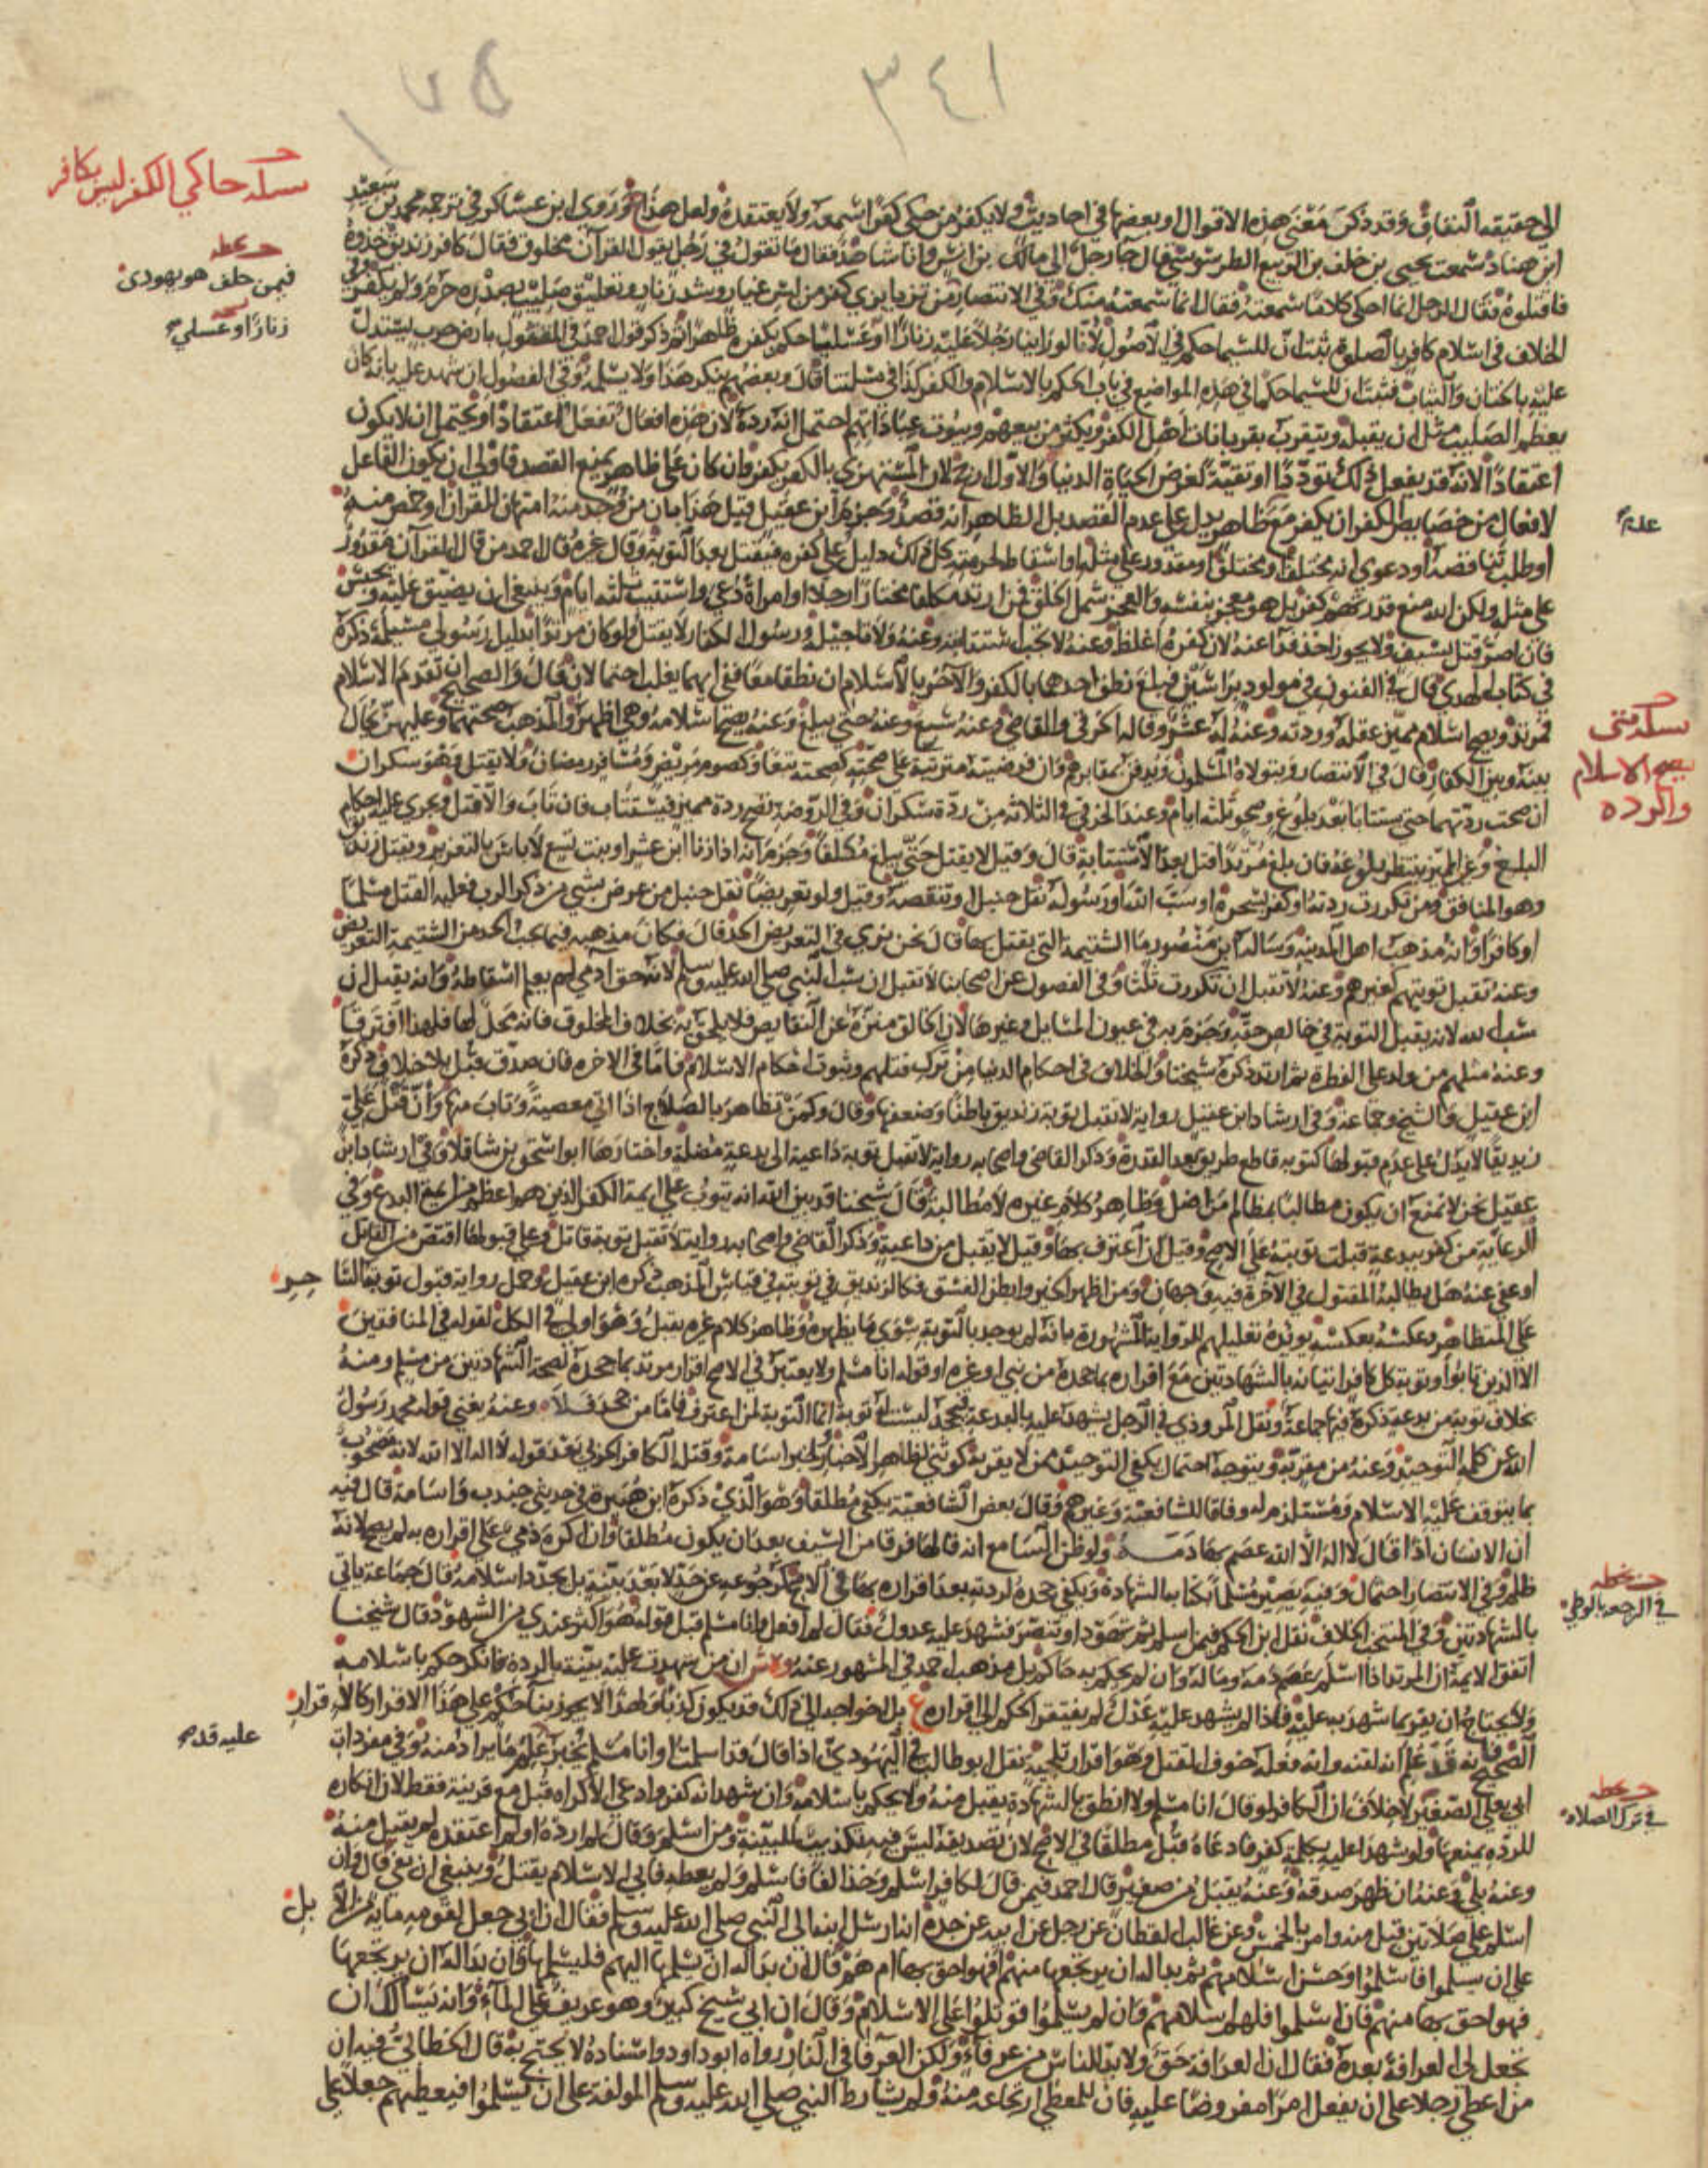 ٣٤١
١٧٥
مسألة حاكي الكفر ليس بكافر
فيمن حلف هو يهودى
زنارا او عسلي
الى حقيقه النفاق وقد ذكر معنى هذه الاقوال او بعضها في احاديث ولا يكفر من حكى كفرا سمعه ولا يعتقده ولعل هذا ح وروى ابن عساكر في ترجمة محمد بن سعيد
ابن هناد سمعت يحيى بن خلف بن الربيع الطرسوسي قال جا رجل الى مالك بن انس وانا شاهد فقال ما تقول في رجل يقول القرآن مخلوق فقال كافر زنديق خذوه
فاقتلوه فقال الرجل انما احكي كلاما سمعته فقال انما سمعته منك وفي الانتصار من تزيا بزي كفر من لبس غيار وشد زنار وتعليق صليب بصدره حرم ولم يكفر
الخلاف في اسلام كافر بالصلوة ثبت ان للسيما حكم في الاصول لانا لو راينا رجلا عليه زنارا او عسليا حكم بكفره ظاهرا ثم ذكر قول احمد في المقتول بارض حرب يستدل
عليه بالختان والثياب فثبت ان للسيما حكما في هذه المواضع في باب الحكم بالاسلام والكفر كذا في مسئلتنا قال وبعضهم ينكر هذا ولا يسلمه وفي الفصول ان شهد عليه بانه كان
يعظم الصليب مثل ان يقبله ويتقرب بقربانات اهل الكفر ويكثر من بيعهم وبيوت عباداتهم احتمل انه ردة لان هذه افعال تفعل اعتقادا او يحتمل ان لا يكون
اعتقادا لانه قد يفعل ذلك توددا او تقية لغرض الحياة الدنيا والاول ارجح لان المستهزي بالكفر يكفر وان كان على ظاهر يمنع القصد فاولى ان يكون الفاعل
لافعال من خصايص الكفر ان يكفر مع ظاهر يدل على عدم القصد بل الظاهر انه قصد وجزم ابن عقيل قبل هذا بان من وجد منه امتهان للقرآن او خمص منه
او طلب تناقضه او دعوى انه مختلف او مختلق او مقدور على مثله او اسقاط لحرمته كل ذلك دليل على كفره فيقتل بعد التوبة وقال غيره قال احمد من قال القرآن مقدور
على مثله ولكن الله منع قدرتهم كفر بل هو معجز بنفسه والعجز شمل الخلق فمن ارتد مكلفا مختارا رجلا او امراة دعي واستتيب ثلثه ايام وينبغي ان يضيق عليه ويحبس
فان اصر قتل بسيف ولا يجوز اخذ فدا عنه لان كفره اغلظ وعنه لا تجب استتابته وعنه ولا تاجيله ورسول الكفار لا يقتل ولو كان مرتدا بدليل رسولي مسيلمة ذكره
في كتاب الهدي قال في الفنون في مولود براسين فبلغ نطق احدهما بالكفر والآخر بالاسلام ان نطقا معا ففي ايهما يغلب احتمالان قال والصحيح ان تقدم الاسلام
فمرتد ويصح اسلام مميز عقله وردته وعنه له عشر وقاله الخرقي والقاضي وعنه سبع وعنه حتى يبلغ وعنه يصح اسلامه وهي اظهر والمذهب صحتهما وعليهن يحال
بينه وبين الكفار قال في الانتصار ويتولاه المسلمون ويدفن بمقابرهم وان فرضيته مترتبة على صحته كصحته تبعا وكصوم مريض ومسافر رمضان ولا يقتل هو وسكران
ان صحت ردتهما حتى يستتابا بعد بلوغ وصحو ثلثه ايام وعند الخرقي في الثلاثة من ردة سكران وفي الروضة تصح ردة مميز فيستتاب فان تاب والا قتل وتجري عليه احكام
البلوغ وغير المميز ينتظر بلوغه فان بلغ مرتدا قتل بعد الاستتابة قال وقيل لا يقتل حتى يبلغ مكلفا وجزم انه اذا زنا ابن عشر او بنت تسع لا باس بالتعزير ويقتل زنديق
وهو المنافق ومن تكررت ردته او كفر بسحره او سب الله او رسوله نقل حنبل او تنقصه وقيل ولو تعريضا نقل حنبل من عرض بشي من ذكر الرب فعليه القتل مسلما
او كافرا وانه مذهب اهل المدينة وساله ابن منصور ما الشتيمة التي يقتل بها قال نحن نرى في التعريض الحد قال فكان مذهبه فيما يجب الحد من الشتيمة التعريض
وعنه تقبل توبتهم كغيرهم وعنه لا تقبل ان تكررت ثلثا وفي الفصول عن اصحابنا لا تقبل ان سب النبي صلى الله عليه وسلم لانه حق ادمي لم يعلم اسقاطه وانه يقبل ان
سب الله لانه يقبل التوبة في خالص حقه وجزم به في عيون المسايل وغيرها لان الخالق منزه عن النقايص فلا يلحق به بخلاف المخلوق فانه محل لها فلهذا افترقا
وعنه مثلهم من ولد على الفطرة ثم ارتد ذكره شيخنا والخلاف في احكام الدنيا من ترك قتلهم وثبوت احكام الاسلام فاما في الاخره فان صدق قبل بلا خلاف ذكره
ابن عقيل والشيخ وجماعة وفي ارشاد ابن عقيل رواية لا تقبل توبة زنديق باطنا وضعفها وقال وكمن تظاهر بالصلاح اذا اتى معصية وتاب منها وان قتل علي
زنديقا لا يدل على عدم قبولها كتوبه قاطع طريق بعد القدرة وذكر القاضي واصحابه رواية لا تقبل توبة داعية الى بدعة مضلة واختارها ابو اسحق بن شاقلا وفي ارشاد ابن
عقيل نحن لا نمنع ان يكون مطالبا بمظالم من اضل وظاهر كلام غيره لا مطالبة قال شيخنا قد بين الله انه يتوب على ايمة الكفر الذين هم اعظم من ايمة البدع وفي
الرعاية من كفر ببدعة قبلت توبته على الاصح وقيل ان اعترف بها وقيل لا يقبل من داعية وذكر القاضي واصحابه رواية لا تقبل توبة قاتل وعلى قبولها لو اقتص من القاتل
او عفي عنه هل يطالبه المقتول في الآخرة فيه وجهان ومن اظهر الخير وابطن الفسق فكالزنديق في توبته في قياس المذهب ذكره ابن عقيل وحمل رواية قبول توبة الساحر
على المتظاهر وعكسه بعكسه يؤيده تعليلهم للرواية المشهورة بانه لم يوجد بالتوبة سوى ما يظهره وظاهر كلام غيره يقبل وهو اولى في الكل لقوله في المنافقين
الا الذين تابوا وتوبة كل كافر اتيانه بالشهادتين مع اقراره بما جحده من نبي او غيره او قوله انا مسلم ولا يعتبر في الاصح اقرار مرتد بما جحده لصحة الشهادتين من مسلم ومنه
بخلاف توبة من بدعة ذكره فيها جماعة ونقل المروذي في الرجل يشهد عليه بالبدعة فيجحد ليست له توبة انما التوبة لمن اعترف فاما من جحد فلا وعنه يغني قوله محمد رسول
الله عن كلمة التوحيد وعنه من مقر به ويتوجه احتمال يكفي التوحيد ممن لا يقر به كوثني لظاهر الاخبار ولخبر اسامة وقتله الكافر الحربي بعد قوله لا اله الا الله لانه مصحوب
بما يتوقف عليه الاسلام ومستلزم له وفاقا للشافعية وغيرهم وقال بعض الشافعية يكفي مطلقا وهو الذي ذكره ابن هبيرة في حديثي جندب واسامة قال فيه
ان الانسان اذا قال لا اله الا الله عصم بها دمه ولو ظن السامع انه قالها فرقا من السيف بعد ان يكون مطلقا وان اكره ذمي على اقراره به لم يصح لانه
ظلم وفي الانتصار احتمال وفيه يصير مسلما بكتابه الشهادة ويكفي جحده لردته بعد اقراره بها في الاصح كرجوعه عن حد لا بعد بينة بل يجدد اسلامه قال جماعة ياتي
بالشهادتين وفي المنتخب الخلاف نقل ابن الحكم فيمن اسلم ثم تهود او تنصر فشهد عليه عدول فقال لم افعل وانا مسلم قبل قوله هو اكثر عندي من الشهود قال شيخنا
اتفق الايمة ان المرتد اذا اسلم عصم دمه وماله وان لم يحكم به حاكم بل مذهب احمد في المشهور عنه ان من شهدت عليه بينة بالردة فانكر حكم باسلامه
ولا يحتاج ان يقر بما شهد به عليه فاذا لم يشهد عليه عدل لم يفتقر الحكم الى اقراره بل اخراجه الى ذلك قد يكون كذبا ولهذا لا يجوز بنا حكم على هذا الاقرار كالاقرار
الصحيح فانه قد علم انه لقنه وانه فعله خوف القتل وهو اقرار تلجئة نقل ابو طالب في اليهودي اذا قال قد اسلمت او انا مسلم يجبر عليه قد علم ما يراد منه وفي مفردات
ابي يعلى الصغير لا خلاف ان الكافر لو قال انا مسلم ولا انطق بالشهادة يقبل منه ولا يحكم باسلامه وان شهد انه كفر وادعى الاكراه قبل مع قرينة فقط لان انكاره
للردة يمنعها ولو شهد عليه بكلمة كفر فادعاه قبل مطلقا في الاصح لان تصديقه ليس فيه تكذيب للبينة ومن اسلم وقال لم ارده او لم اعتقده لم يقبل منه
وعنه بلى وعنه ان ظهر صدقه وعنه يقبل من صغير قال احمد فيمن قال لكافر اسلم وخذ الفا فاسلم ولم يعطه فابى الاسلام يقتل وينبغي ان يفي قال وان
اسلم على صلاتين قبل منه وامر بالخمس وعن غالب القطان عن رجل عن ابيه عن جده انه ارسل ابنه الى النبي صلى الله عليه وسلم فقال ان ابي جعل لقومه ماية من الابل
على ان يسلموا فاسلموا وحسن اسلامهم ثم بدا له ان يرتجعها منهم افهو احق بها ام هم قال ان بدا له ان يسلمها اليهم فليسلمها وان بدا له ان يرتجعها
فهو احق بها منهم فان اسلموا فلهم اسلامهم وان لم يسلموا قوتلوا على الاسلام وقال ان ابي شيخ كبير وهو عريف على الماء وانه يسالك ان
تجعل لي العرافة بعده فقال ان العرافة حق ولا بد للناس من عرفاء ولكن العرفا في النار رواه ابو داود واسناده لا يحتج به قال الخطابي فيه ان
من اعطى رجلا على ان يفعل امرا مفروضا عليه فان للمعطي ارتجاعه منه ولم يشارط النبي صلى الله عليه وسلم المولفة على ان يسلموا فيعطيهم جعلا على
مسألة متى
يصح الاسلام
والرده
في الرجعه بالوطي
عليه قد
في ترك الصلاه